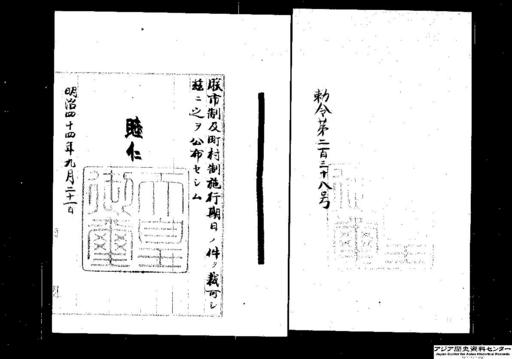 勅令第二百三十八号
朕市制及町村制施行期日ノ件ヲ裁可シ
玆ニ之ヲ公布セシム
睦仁
天皇御璽
明治四十四年九月二十一日
アジア歴史資料センター
Japan Center for Asian Historical Records